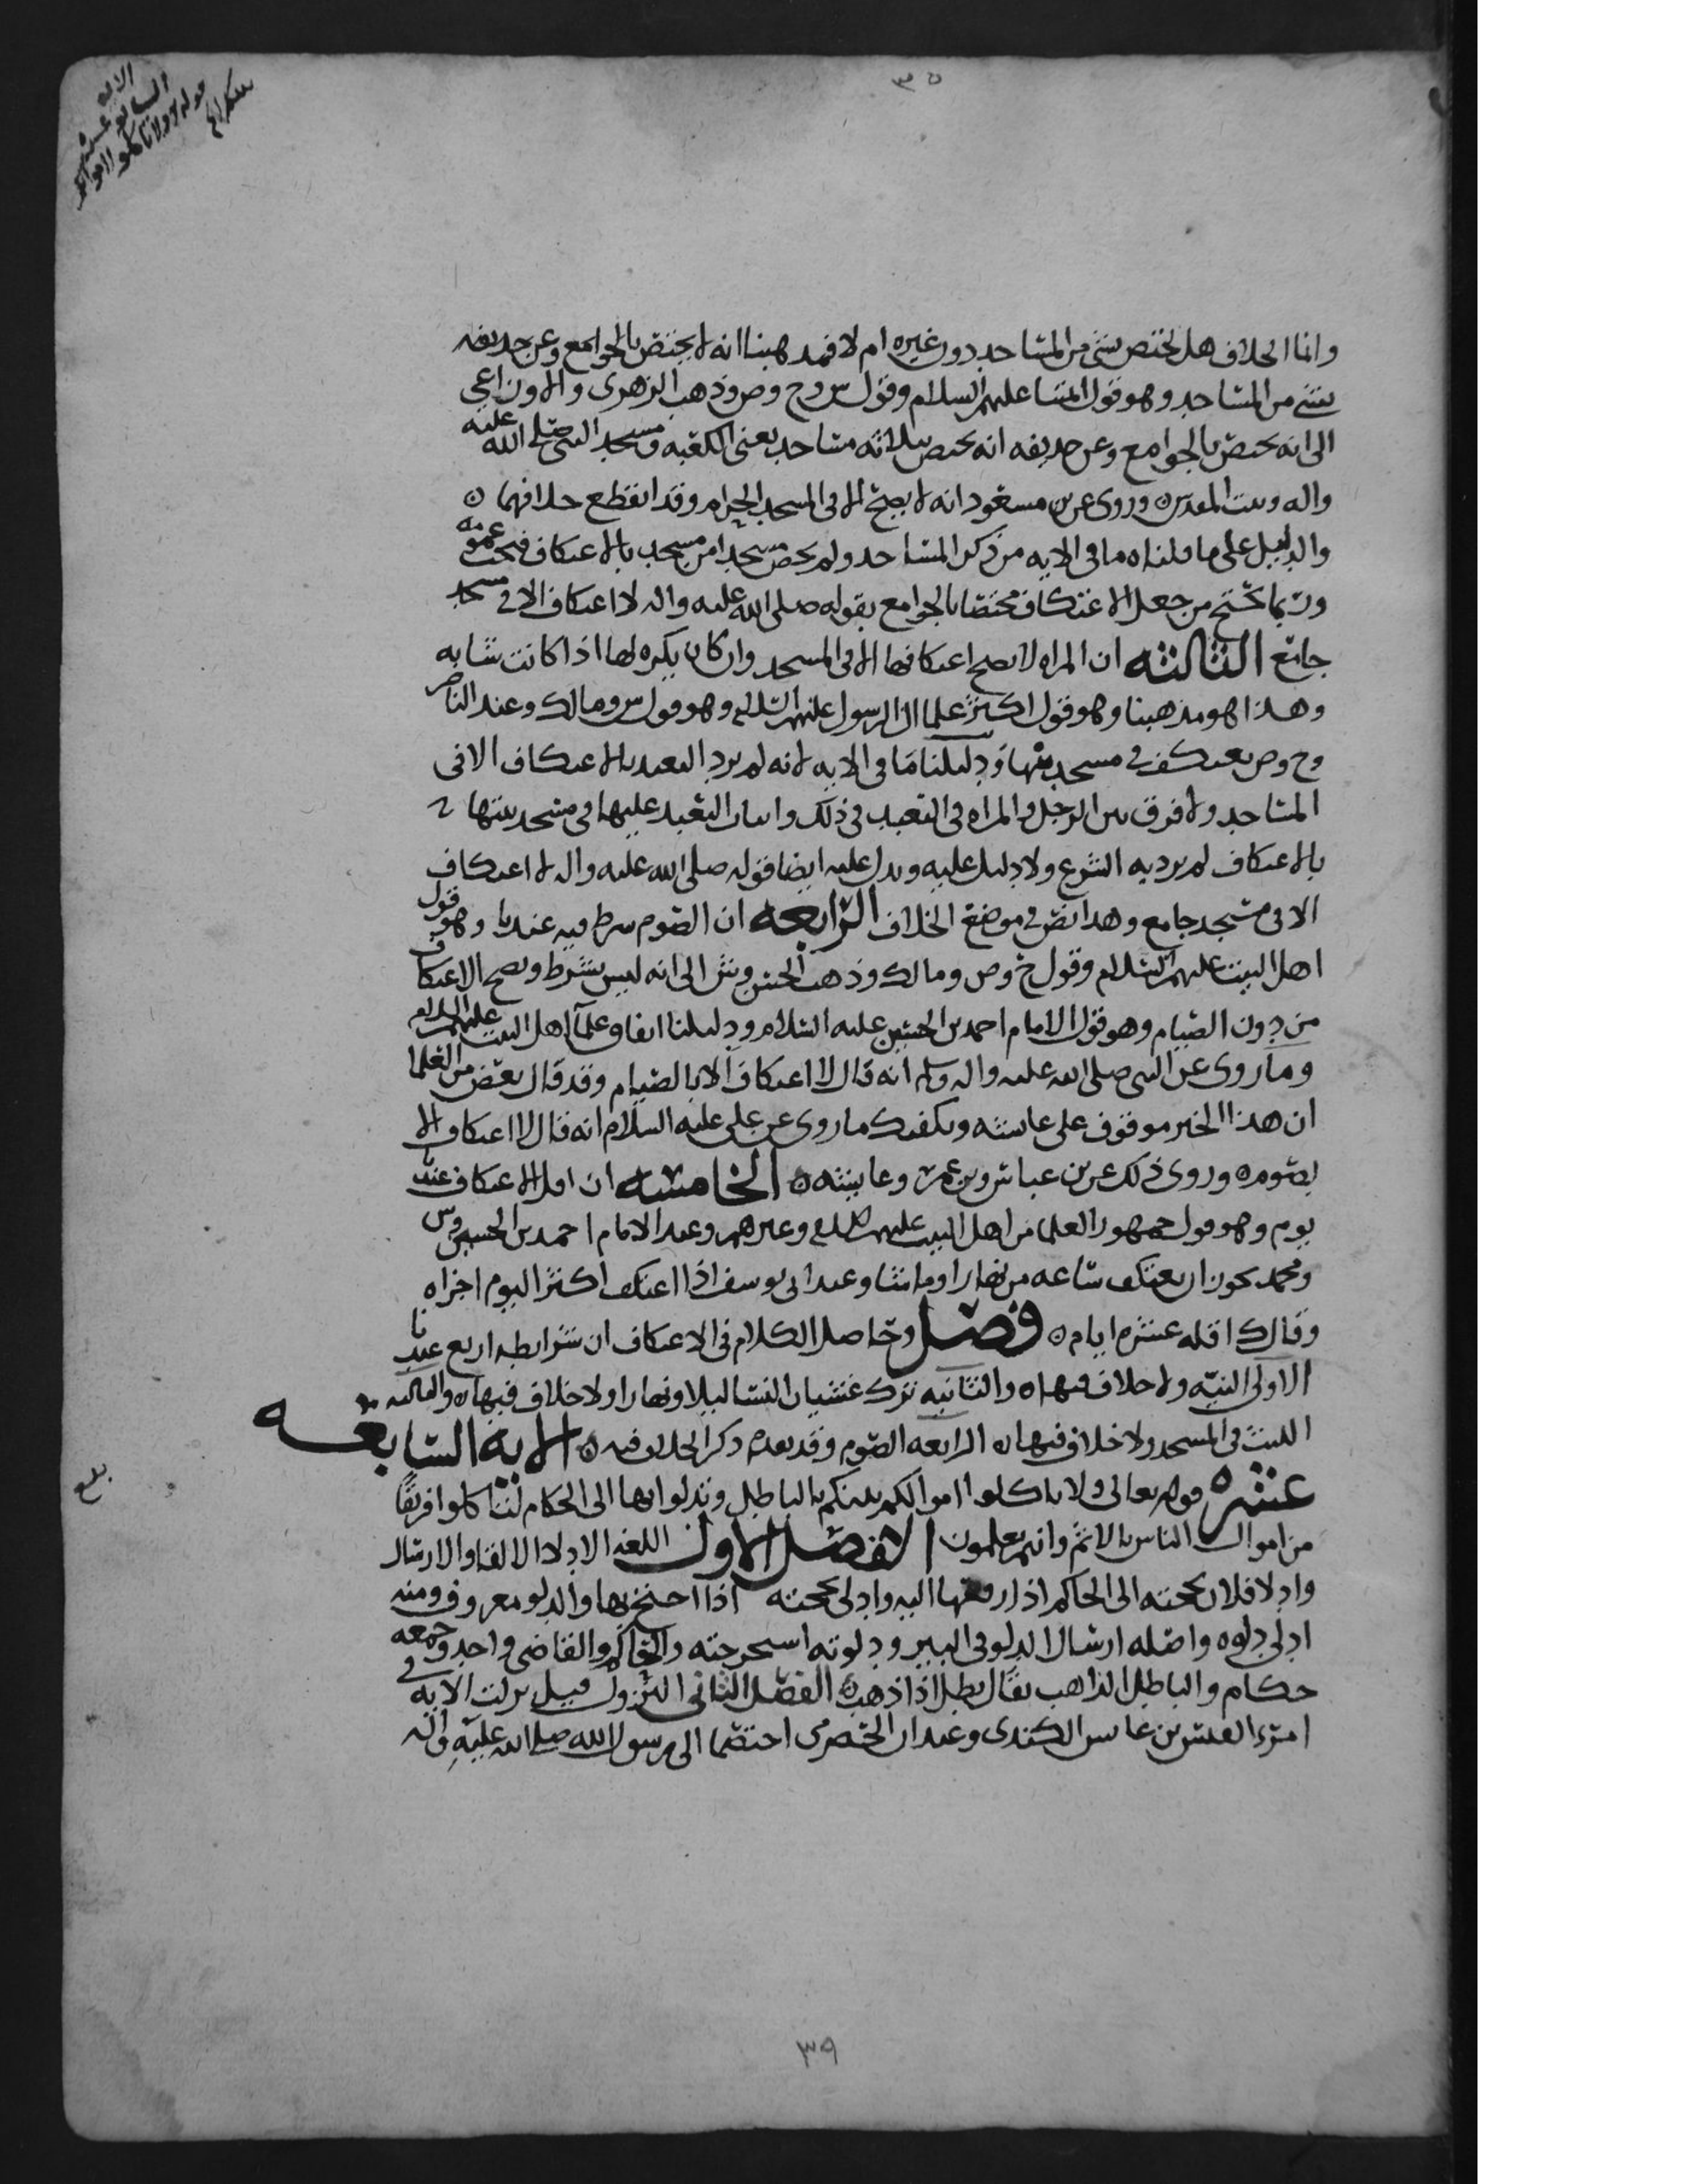 الايه
السابعه عشر
قوله ولا تاكلوا اموالكم
بينكم الخ
٣٥
وانما الخلاف هل يختص بشي من المساجد دون غيره ام لا فمذهبنا انه لا يختص بالجوامع وعن حذيفه
بشي من المساجد وهو قول ائمتنا عليهم السلام وقول س وح وص وذهب الزهري والاوزاعي
الى انه يختص بالجوامع وعن حذيفه انه يختص بثلاثه مساجد يعني الكعبه ومسجد النبي صلى الله عليه
واله وبيت المقدس وروي عن بن مسعود انه لا يصح الا في المسجد الحرام وقد انقطع خلافهما
والدليل على ما قلناه ما في الايه من ذكر المساجد ولم يخص مسجدا من مسجد بالاعتكاف فيه
وربما يحتج من جعل الاعتكاف مختصا بالجوامع بقوله صلى الله عليه واله لا اعتكاف الا في مسجد
جامع الثالثه ان المراه لا يصح اعتكافها الا في المسجد وان كان يكره لها اذا كانت شابه
وهذا هو مذهبنا وهو قول اكثر علما ال الرسول عليهم السلام وهو قول س ومالك وعند الناصر
وح وص يعتكف في مسجد بيتها ودليلنا ما في الايه لانه لم يرد التعبد بالاعتكاف الا في
المساجد ولا فرق بين الرجل والمراه في التعبد في ذلك واثبات التعبد عليها في مسجد بيتها
بالاعتكاف لم يرد به الشرع ولا دليل عليه ويدل عليه ايضا قوله صلى الله عليه واله لا اعتكاف
الا في مسجد جامع وهذا نص في موضع الخلاف الرابعه ان الصوم شرط فيه عندنا وهو قول
اهل البيت عليهم السلام وقول ح وص ومالك وذهب الحسن وش الى انه ليس بشرط ويصح الاعتكاف
من دون الصيام وهو قول الامام احمد بن الحسين عليه السلام ودليلنا اتفاق علما اهل البيت عليهم السلام
وما روي عن النبي صلى الله عليه واله وسلم انه قال لا اعتكاف الا بالصيام وقد قال بعض من العلما
ان هذا الخبر موقوف على عائشه ويكفيك ما روي عن علي عليه السلام انه قال لا اعتكاف الا
بصوم وروي ذلك عن بن عباس وبن عمر وعائشه الخامسه ان اقل الاعتكاف عندنا
يوم وهو قول جمهور العلما من اهل البيت عليهم السلام وغيرهم وعند الامام احمد بن الحسين وس
ومحمد يجوز ان يعتكف ساعه من نهار او ما شا وعند ابي يوسف اذا اعتكف اكثر اليوم اجزاه
وقال ك اقله عشره ايام فصل وحاصل الكلام في الاعتكاف ان شرايطه اربع عندنا
الاولى النيه ولا خلاف فيها والثانيه ترك غشيان النسا ليلا ونهارا ولا خلاف فيها والثالثه
اللبث في المسجد ولا خلاف فيها الرابعه الصوم وقد تقدم ذكر الخلاف فيه الايه السابعه
عشره قوله تعالى ولا تاكلوا اموالكم بينكم بالباطل وتدلوا بها الى الحكام لتاكلوا فريقا
من اموال الناس بالاثم وانتم تعلمون الفصل الاول اللغه الادلا الالقا والارسال
وادلا فلان بحجته الى الحاكم اذا رفعها اليه وادلى بحجته اذا احتج بها والدلو معروف ومنه
ادلى دلوه واصله ارسال الدلو في البير ودلوته استخرجته والحاكم والقاضي واحد وجمعه
حكام والباطل الذاهب يقال بطل اذا ذهب الفصل الثاني النزول قيل نزلت الايه في
امرء القيس بن عابس الكندي وعبدان الحضرمي اختصما الى رسول الله صلى الله عليه واله
بلغ
٣٩